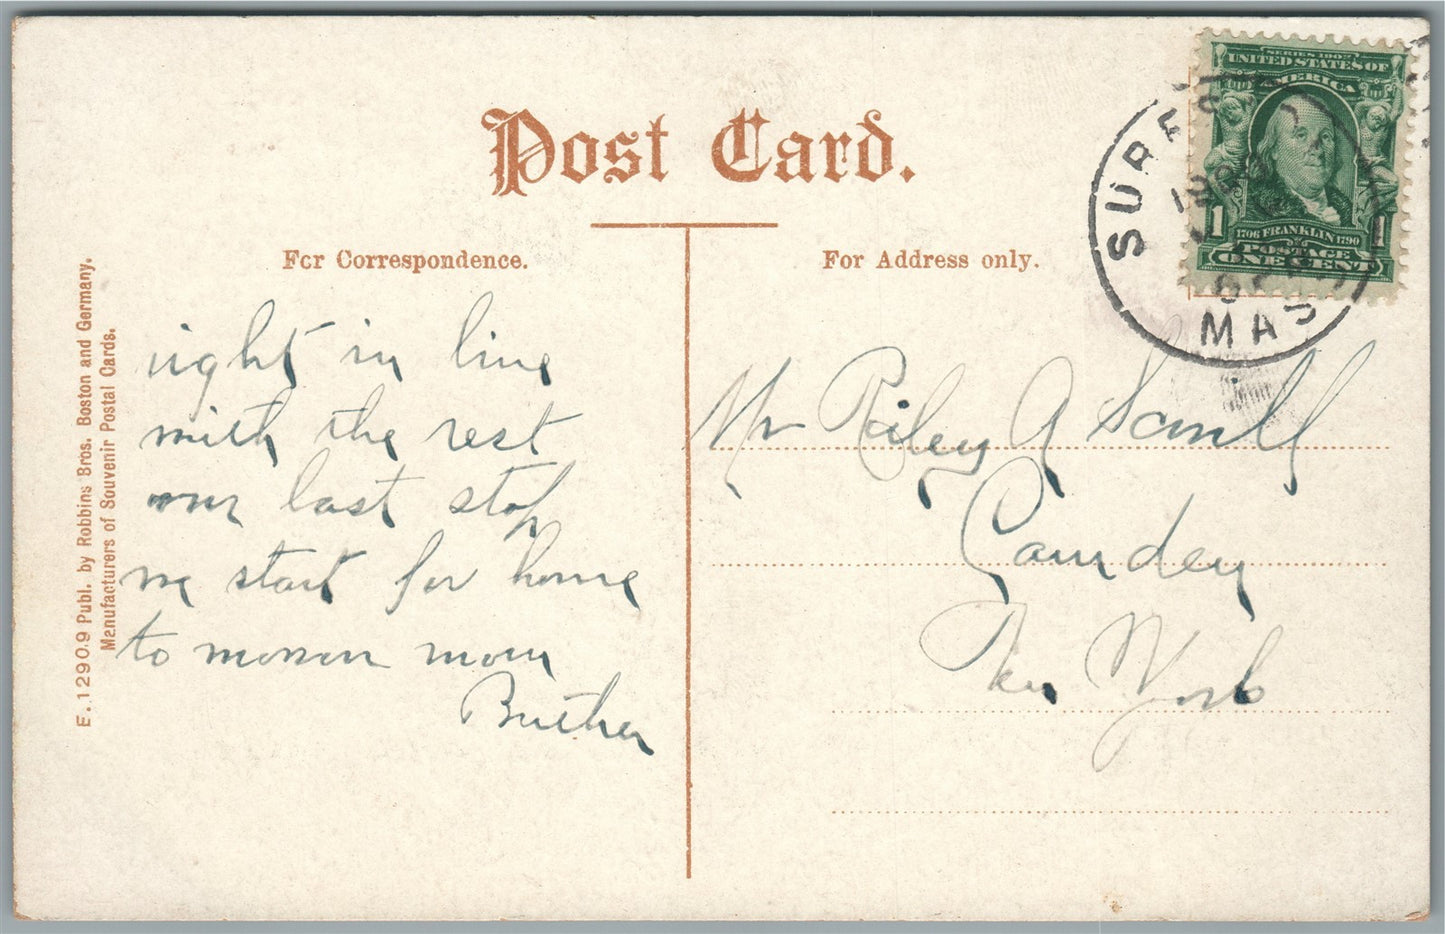 Post Card.
For Correspondence.
For Address only.
E. 12909 Publ. by Robbins Bros. Boston and Germany.
Manufacturers of Souvenir Postal Cards.
right in line
with the rest
our last stop
we start for home
to morrow morn
Mr Riley A
Camden
New York
SERIES 1902
UNITED STATES OF
AMERICA
1706 FRANKLIN 1790
1 1
POSTAGE
ONE CENT
MASS